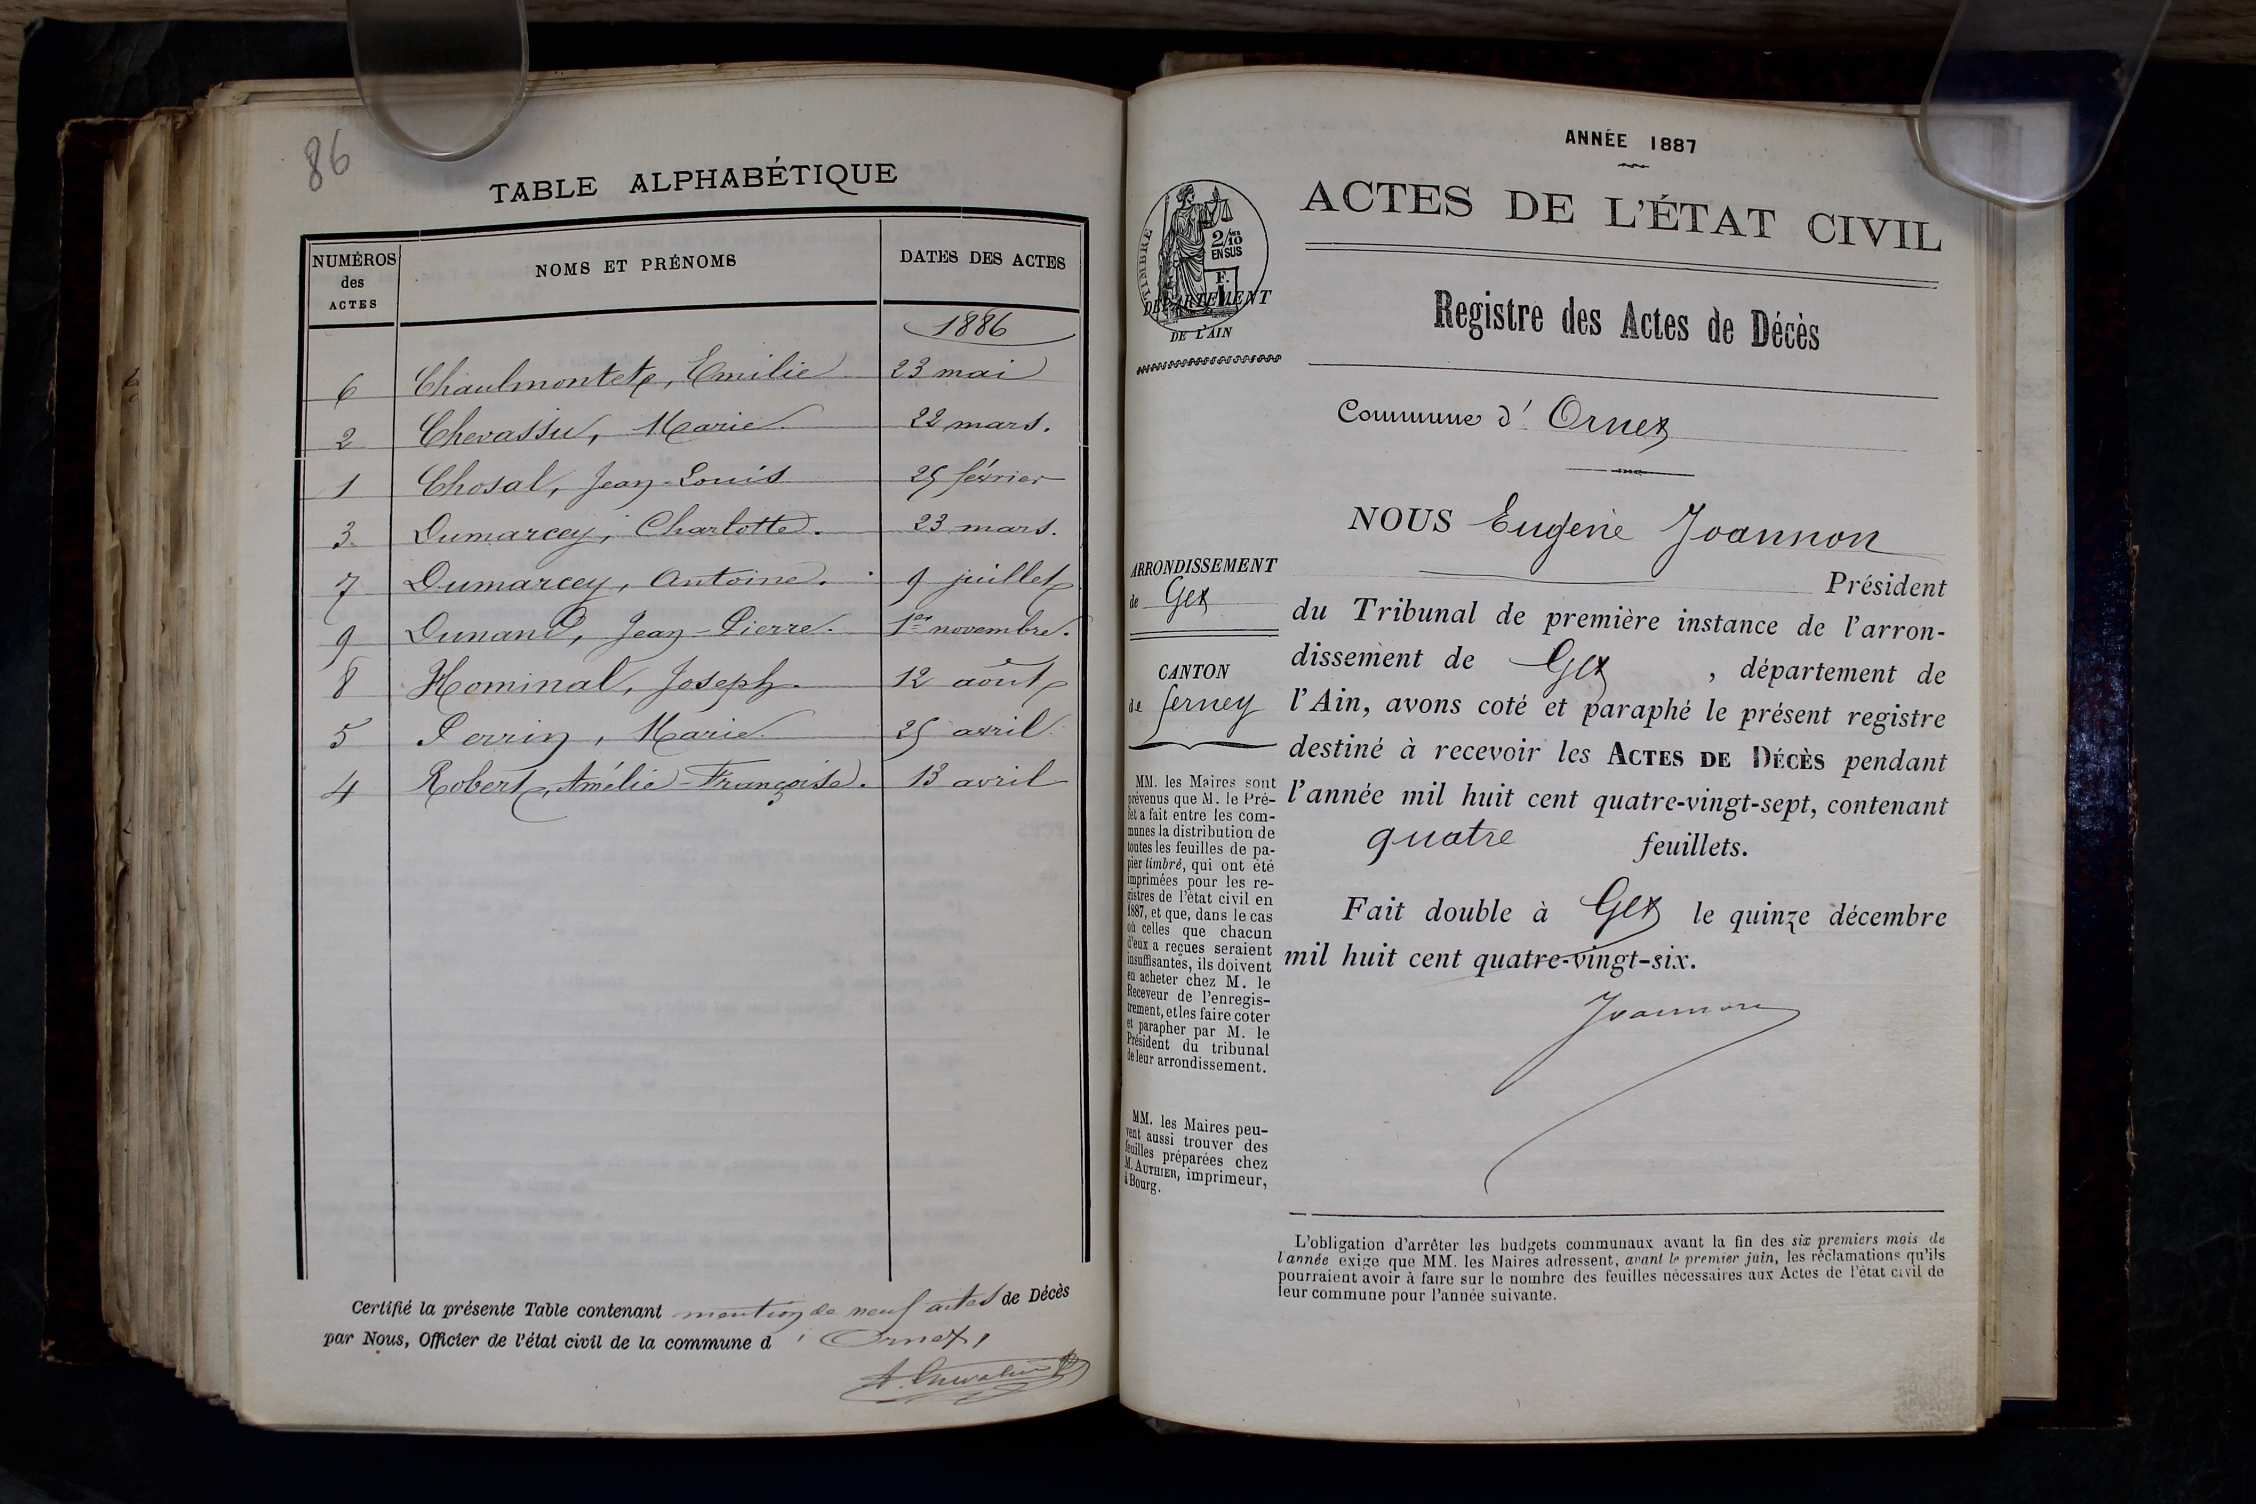 86
TABLE ALPHABÉTIQUE
NUMÉROS des ACTES
NOMS ET PRÉNOMS
DATES DES ACTES
1886
6 Chaulmontete, Emilie 23 mai
2 Chevassu, Marie 22 mars.
1 Chosal, Jean-Louis 25 février
3 Dumarcey, Charlotte. 23 mars.
7 Dumarcey, Antoine. 9 juillet
9 Dunand, Jean-Pierre. 1er novembre.
8 Hominal, Joseph. 12 août
5 Perrin, Marie. 25 avril.
4 Robert, Amélie-Françoise. 13 avril
Certifié la présente Table contenant mention de neuf actes de Décès
par Nous, Officier de l'état civil de la commune d' Ornex,
ANNÉE 1887
ACTES DE L'ÉTAT CIVIL
TIMBRE
2/10
EN SUS
F.
1
DÉPARTEMENT
DE L'AIN
Registre des Actes de Décès
Commune d' Ornex
NOUS Eugène Joannon
Président
du Tribunal de première instance de l'arron-
dissement de Gex , département de
l'Ain, avons coté et paraphé le présent registre
destiné à recevoir les ACTES DE DÉCÈS pendant
l'année mil huit cent quatre-vingt-sept, contenant
quatre feuillets.
Fait double à Gex le quinze décembre
mil huit cent quatre-vingt-six.
Joannon
ARRONDISSEMENT
de Gex
CANTON
de Ferney
MM. les Maires sont
prévenus que M. le Pré-
fet a fait entre les com-
munes la distribution de
toutes les feuilles de pa-
pier timbré, qui ont été
imprimées pour les re-
gistres de l'état civil en
1887, et que, dans le cas
où celles que chacun
d'eux a reçues seraient
insuffisantes, ils doivent
en acheter chez M. le
Receveur de l'enregis-
trement, et les faire coter
et parapher par M. le
Président du tribunal
de leur arrondissement.
MM. les Maires peu-
vent aussi trouver des
feuilles préparées chez
M. AUTHIER, imprimeur,
à Bourg.
L'obligation d'arrêter les budgets communaux avant la fin des six premiers mois de
l'année exige que MM. les Maires adressent, avant le premier juin, les réclamations qu'ils
pourraient avoir à faire sur le nombre des feuilles nécessaires aux Actes de l'état civil de
leur commune pour l'année suivante.